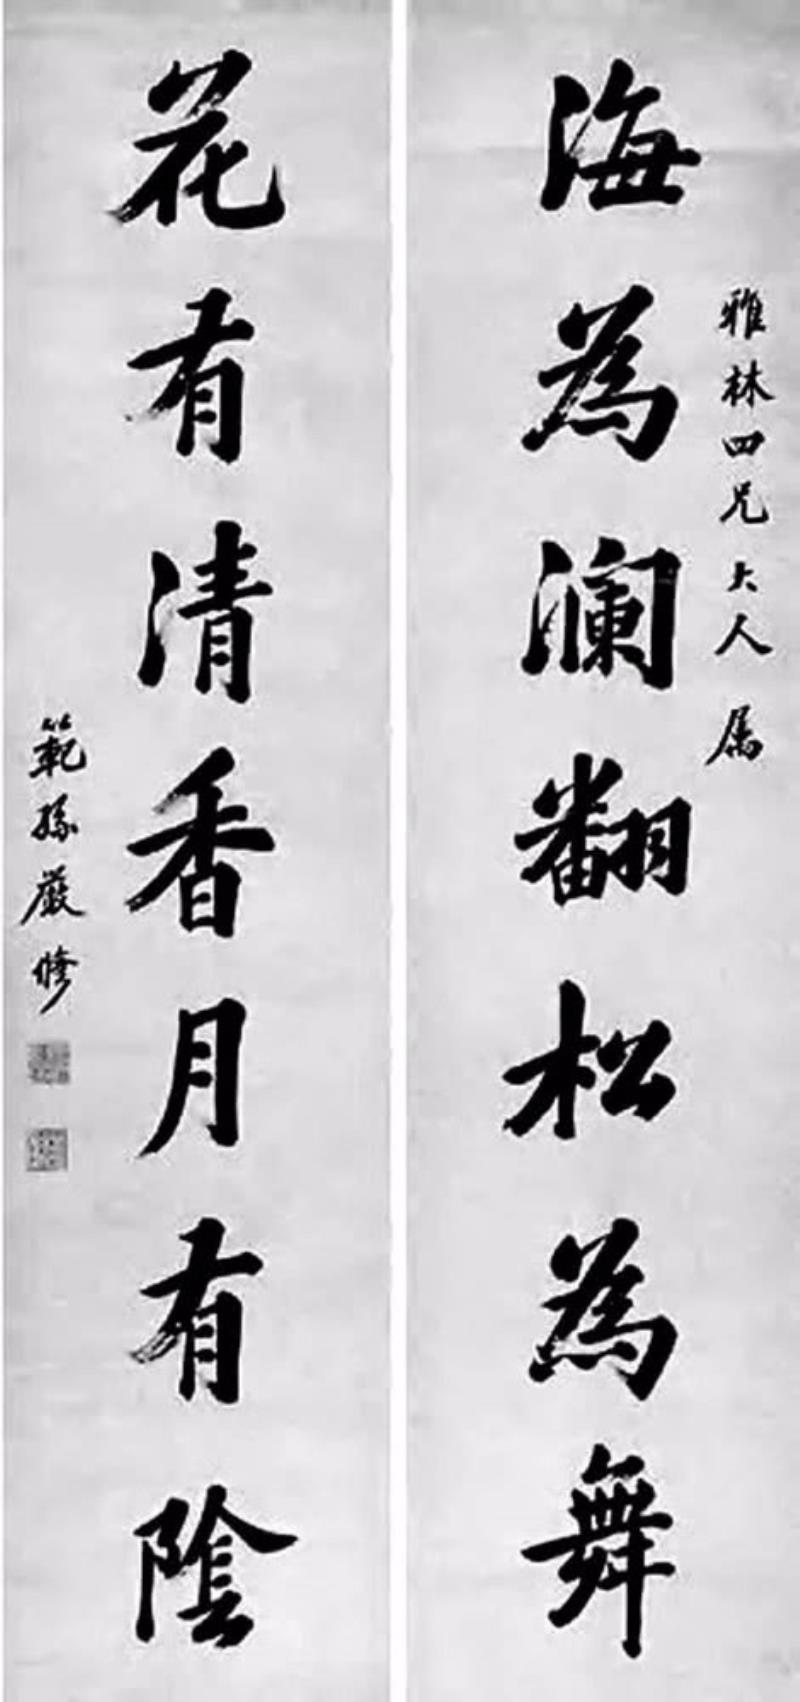 雅林四兄大人属
海為澜翻松為舞
花有清香月有陰
範孫嚴修